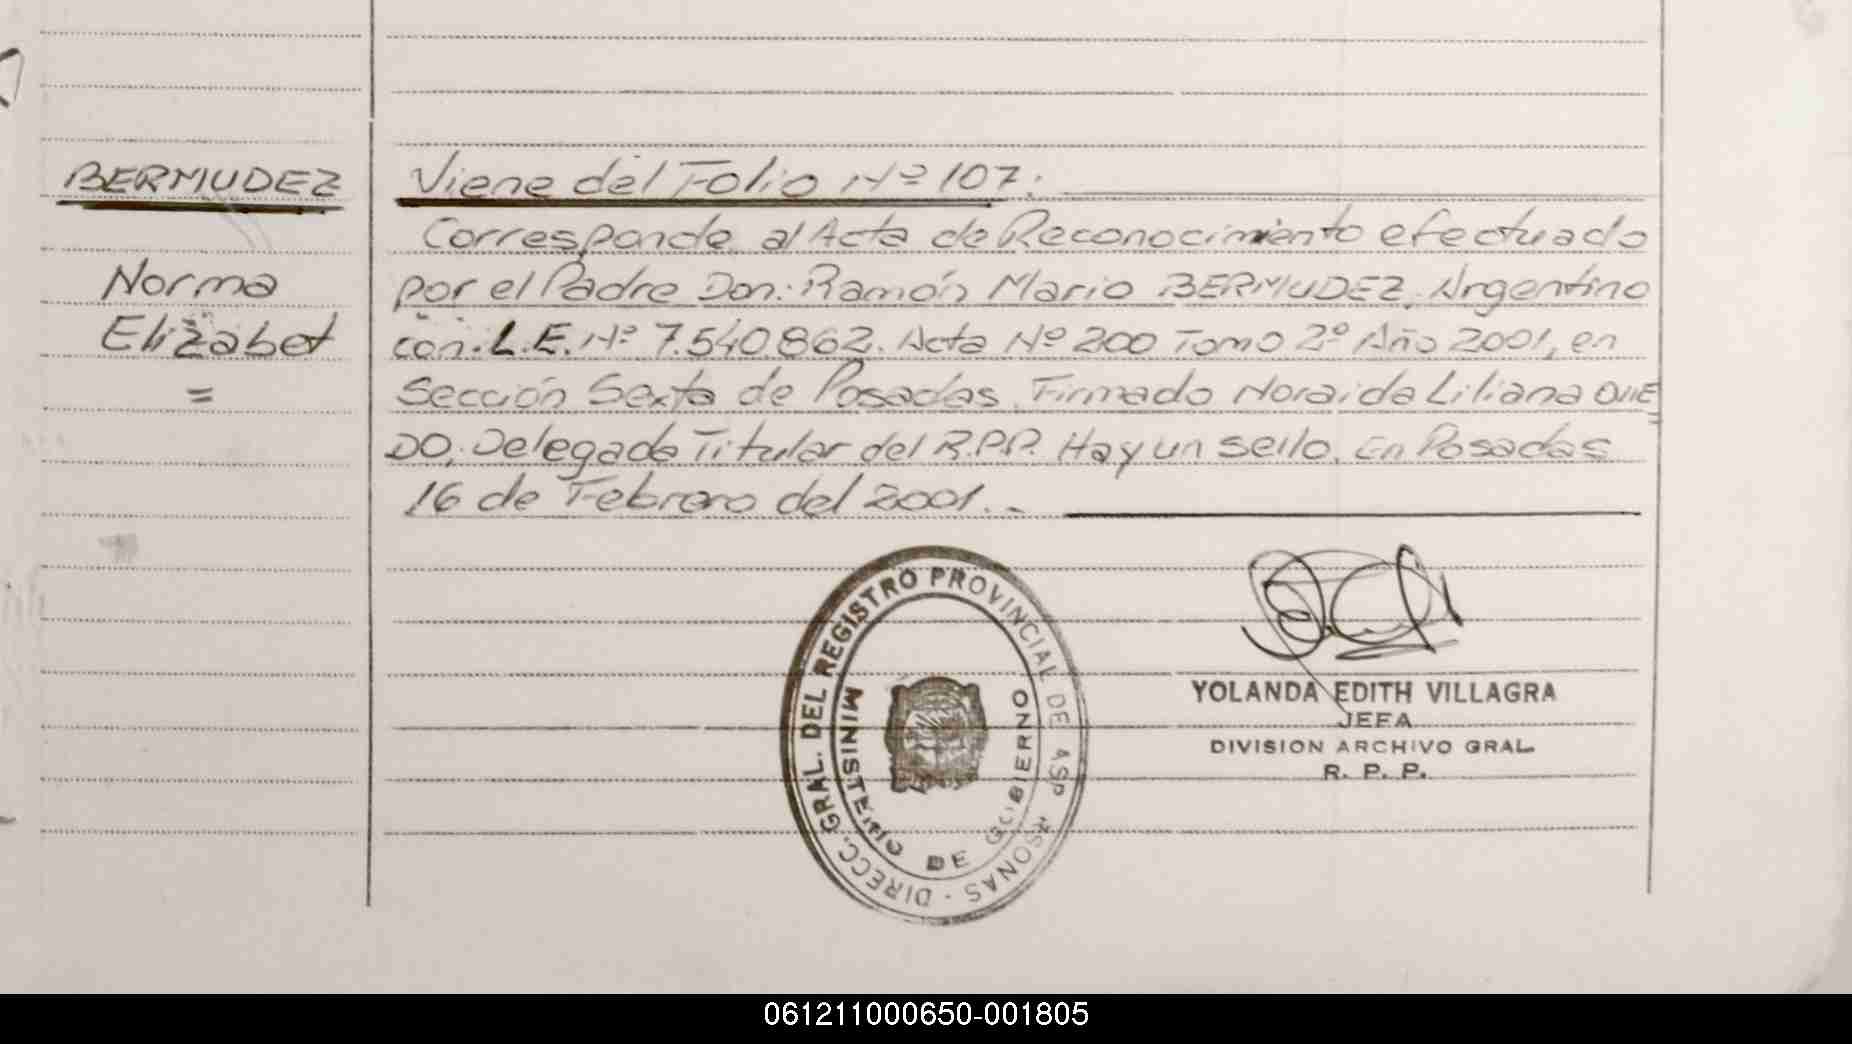 BERMUDEZ
Norma
Elizabet
=
Viene del Folio Nº 107.
Corresponde al Acta de Reconocimiento efectuado
por el Padre Don: Ramón Mario BERMUDEZ, Argentino
con L.E. Nº 7.540.862. Acta Nº 200 Tomo 2º Año 2001, en
Sección Sexta de Posadas. Firmado Noraida Liliana OVIE
DO, Delegada Titular del R.P.P. Hay un sello. En Posadas
16 de Febrero del 2001.
DIRECC. GRAL. DEL REGISTRO PROVINCIAL DE
MINISTERIO DE GOBIERNO
YOLANDA EDITH VILLAGRA
JEFA
DIVISION ARCHIVO GRAL.
R. P. P.
061211000650-001805